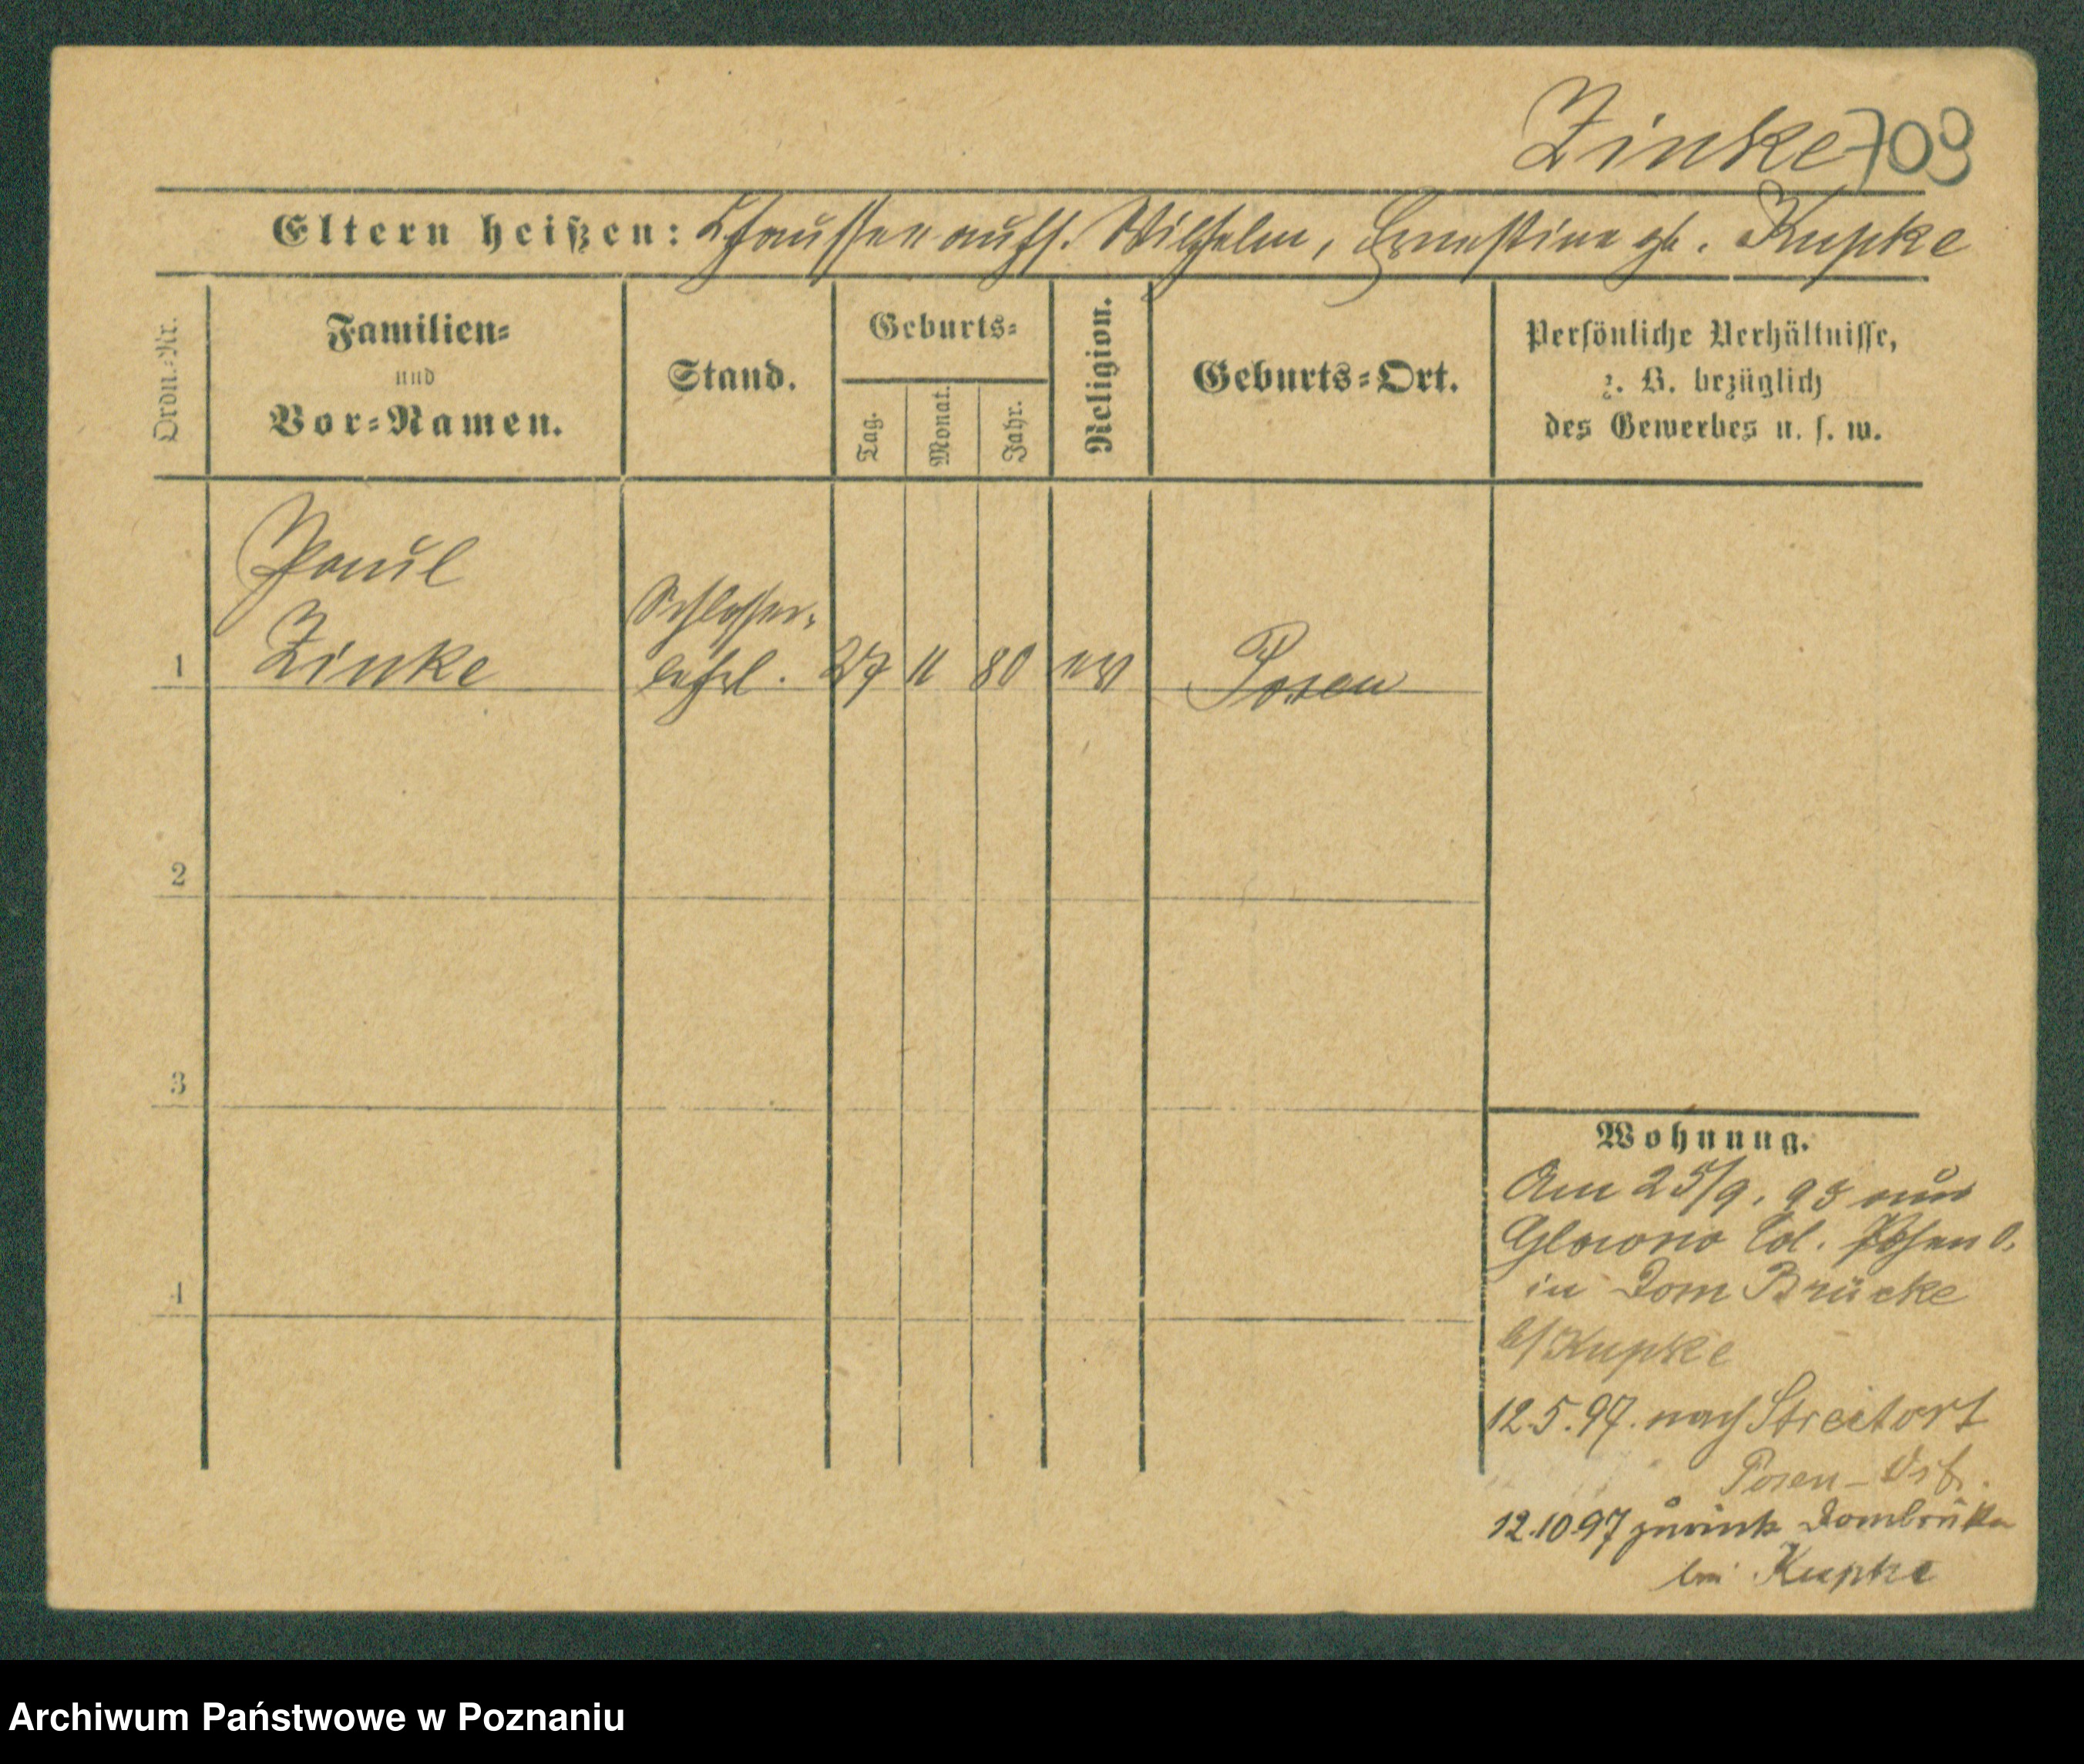 Zinke 709
Eltern heißen: Chausseeaufs. Wilhelm, Ernestine gb. Kupke
Ordn.-Nr.
Familien-
und
Vor-Namen.
Stand.
Geburts-
Tag.
Monat.
Jahr.
Religion.
Geburts-Ort.
Persönliche Verhältnisse,
z. B. bezüglich
des Gewerbes u. s. w.
Paul
Schlosser-
1 Zinke lehrl. 27 11 80 ev Posen
2
3
4
Wohnung.
Am 25/9. 95 aus
Glowno Col. Posen O.
in Dom Brücke
b/ Kupke
12.5.97. nach Streitort
Posen-Ost.
12.10.97 zurück Dombrücke
bei Kupke
Archiwum Państwowe w Poznaniu